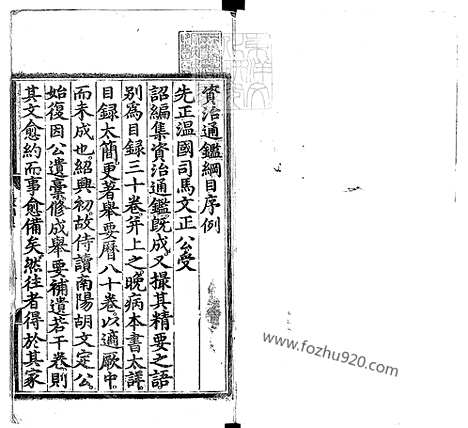 資治通鑑綱目序例
先正温國司馬文正公受
詔編集資治通鑑旣成又撮其精要之語
别爲目録三十卷并上之晚病本書太詳
目録太簡更著舉要曆八十卷以適厥中
而未成也紹興初故侍讀南陽胡文定公
始復因公遺稾修成舉要補遺若干卷則
其文愈約而事愈備矣然徃者得於其家
www.fozhu920.com